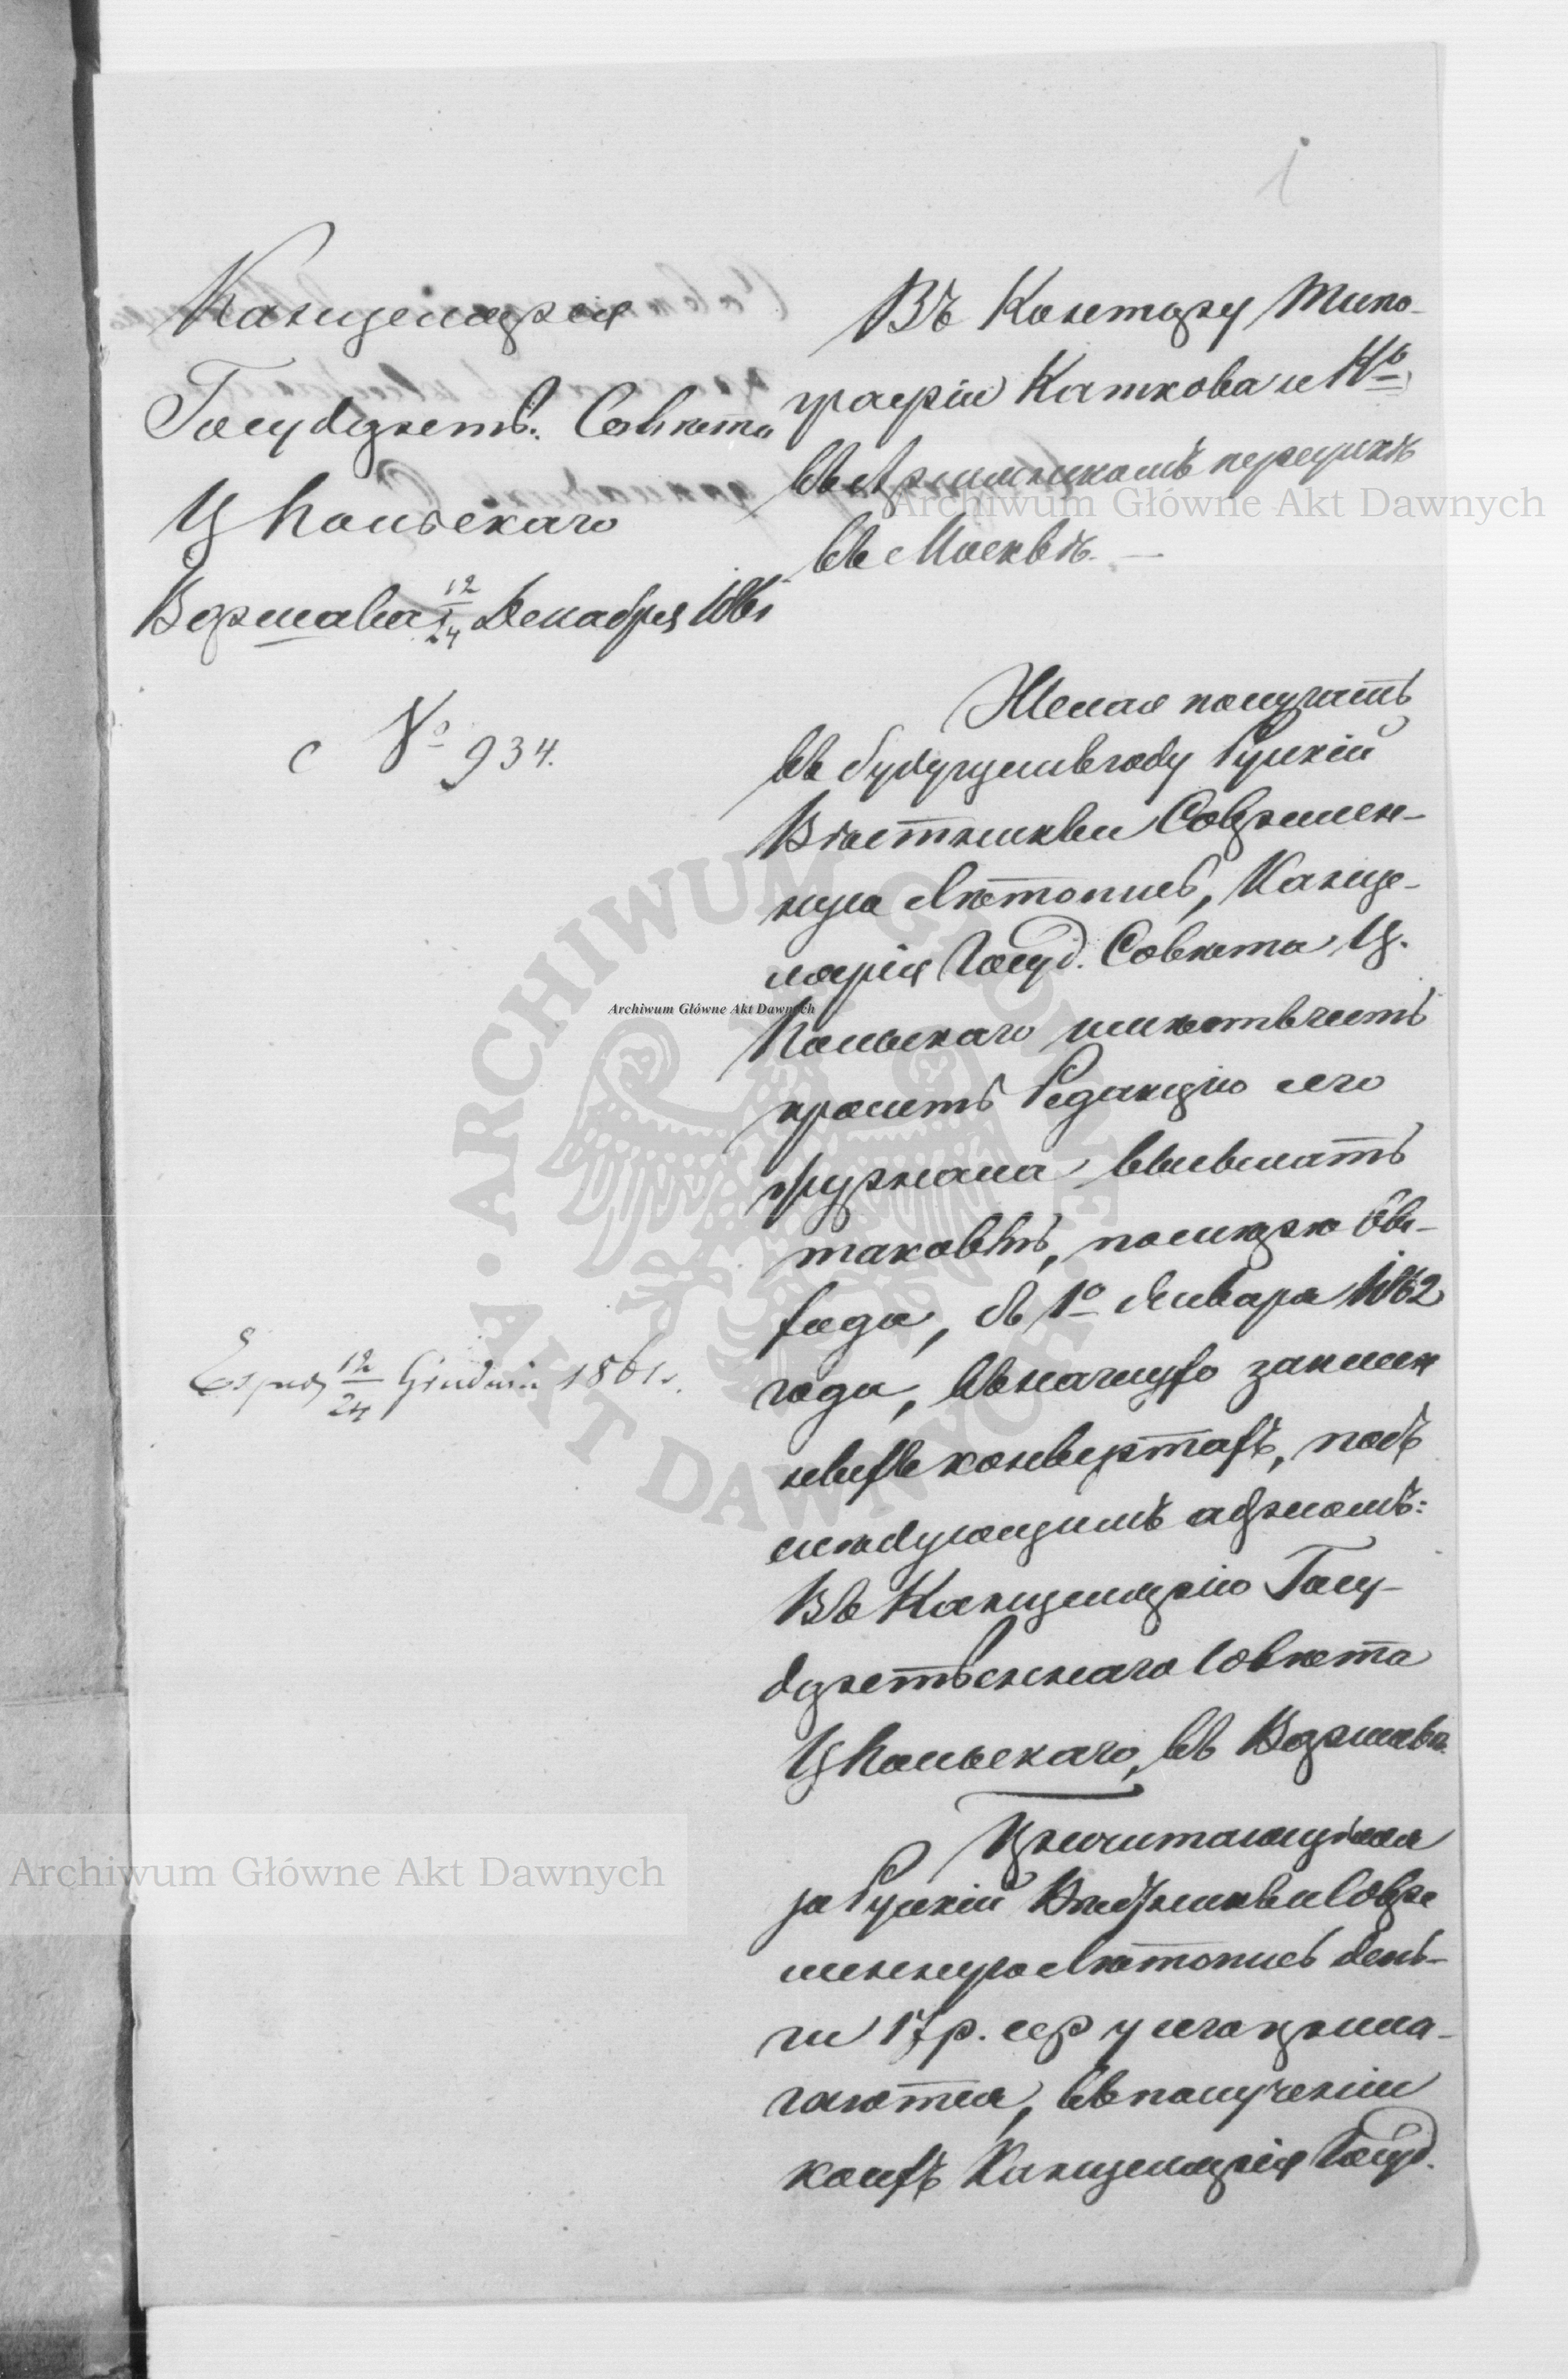 1
Канцелярія
Государств. Совѣта
Ц Польскаго
Варшава 12/24 Декабря 1861
с № 934.
Въ Контору Типо-
графіи Каткова и Кº
въ Армянскомъ переулкѣ
въ Москвѣ. —
Желая получать
въ будущемъ году Рускій
Вѣстникъ и Современ-
ную Лѣтопись, Канце-
лярія Госуд. Совѣта Ц.
Польскаго имѣетъ честь
просить Редакцію сего
журнала высылать
таковыя, по мѣрѣ вы-
хода, съ 1º Января 1862
года, въ
ныхъ конвертахъ, подъ
слѣдующимъ адресомъ:
Въ Канцелярію Госу-
дарственнаго Совѣта
Ц Польскаго, въ Варшавѣ.
Причитающіяся
за Рускій Вѣстникъ и Совре
менную Лѣтопись день-
ги 17 р. сер у сего прила-
гаются, въ полученіи
коихъ Канцелярія Госуд.
12/24 Grudnia 1861 r.
Archiwum Główne Akt Dawnych
Archiwum Główne Akt Dawnych
Archiwum Główne Akt Dawnych
ARCHIWUM GŁÓWNE
AKT DAWNYCH